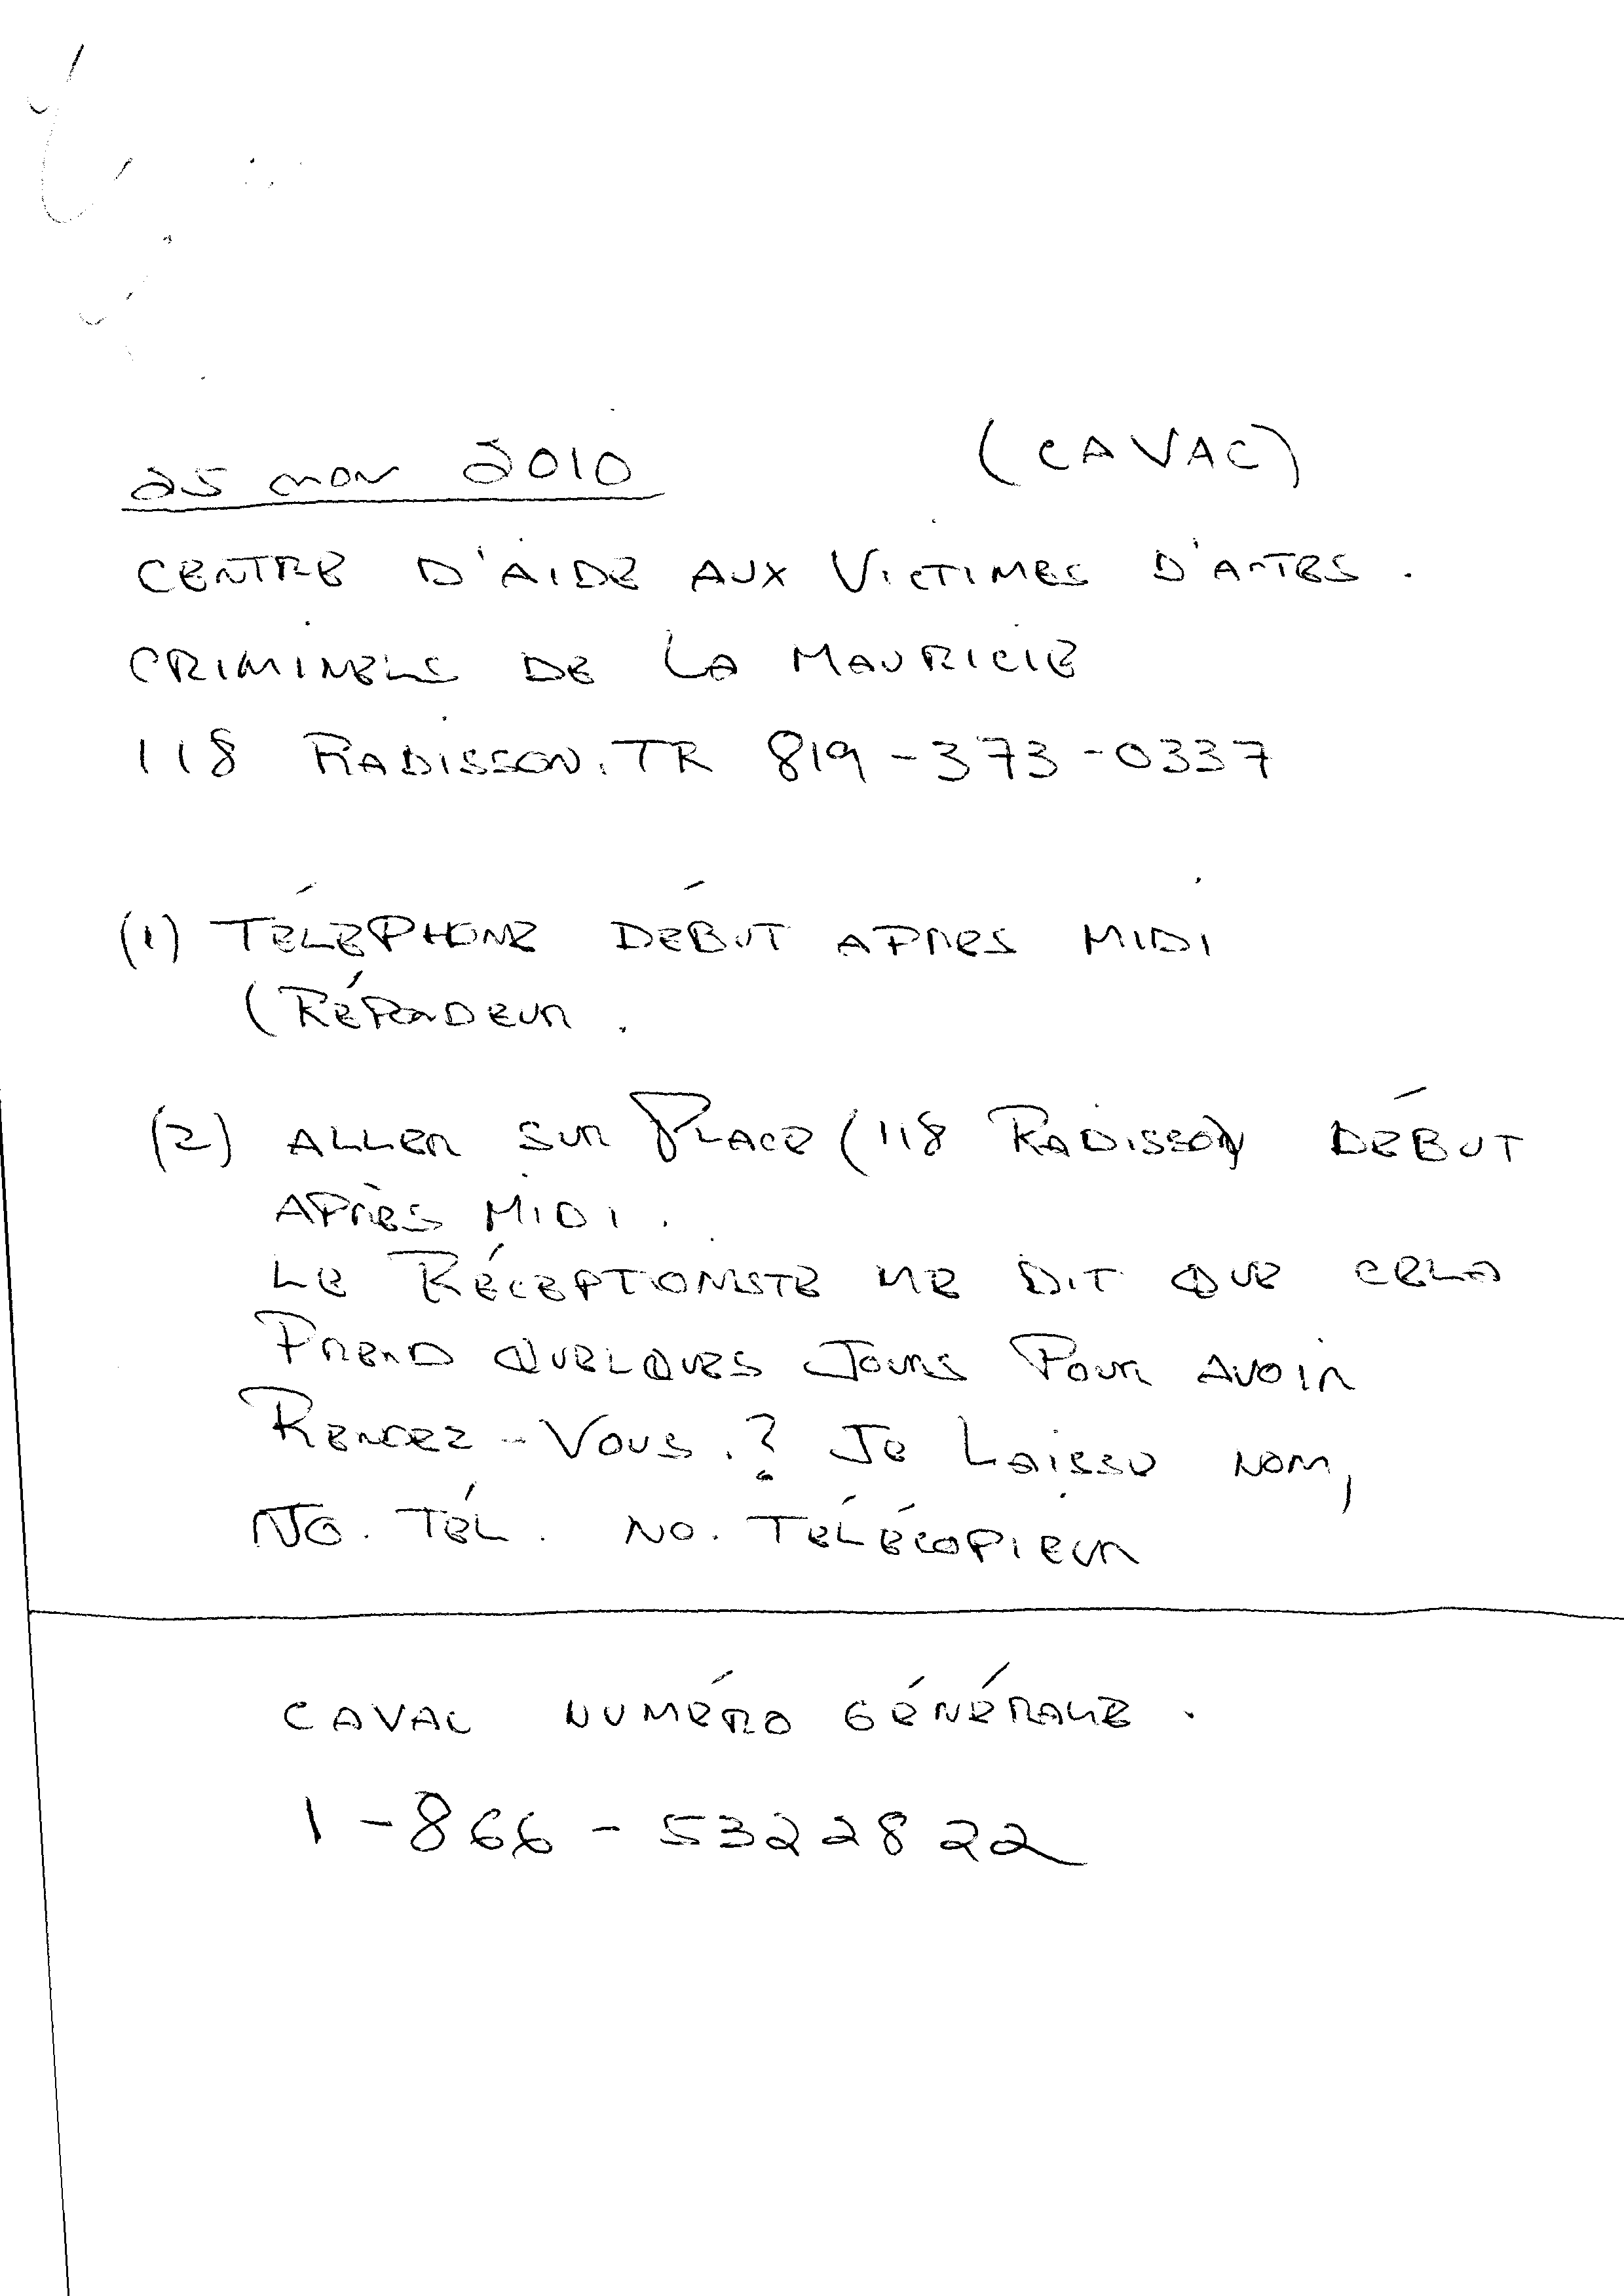 25 nov 2010 (CAVAC)
CENTRE D'AIDE AUX VICTIMES D'ACTES.
CRIMINELS DE LA MAURICIE
118 RADISSON. TR 819-373-0337
(1) TÉLÉPHONE DÉBUT APRES MIDI
(RÉPONDEUR.
(2) ALLER SUR PLACE (118 RADISSON) DÉBUT
APRÈS MIDI.
LE RÉCEPTIONISTE ME DIT QUE CELA
PREND QUELQUES JOURS POUR AVOIR
RENDEZ-VOUS.? JE LAISSE NOM,
NO. TÉL. NO. TÉLÉCOPIEUR
CAVAC NUMÉRO GÉNÉRALE.
1-866-5322822